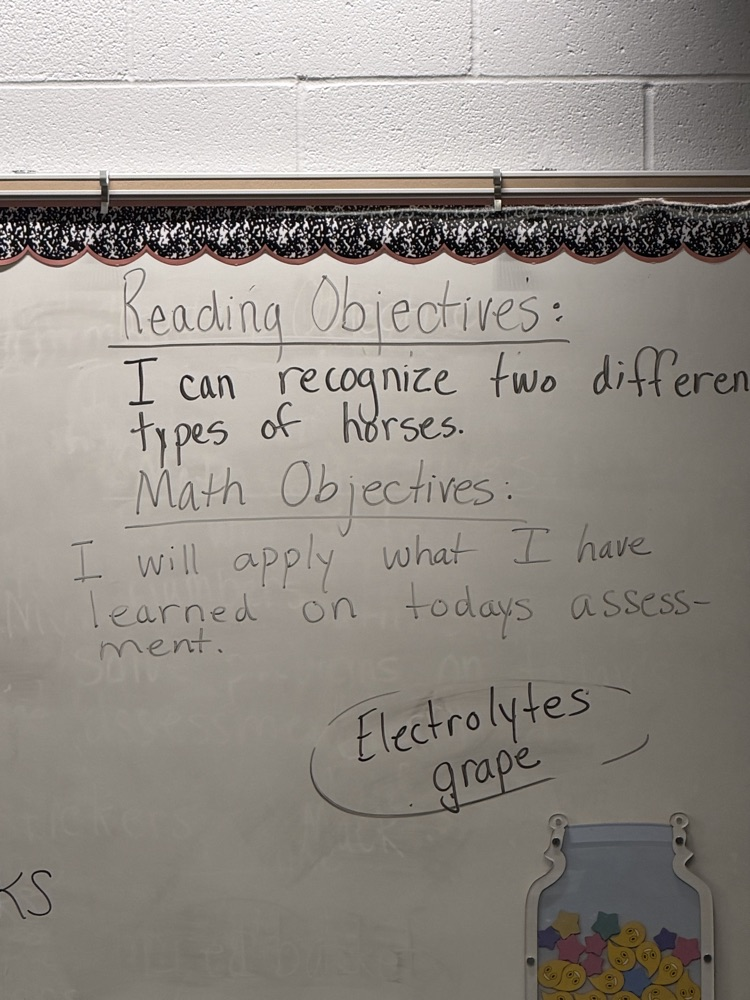 Reading Objectives:
I can recognize two differen
types of horses.
Math Objectives:
I will apply what I have
learned on todays assess-
ment.
Electrolytes
grape
KS